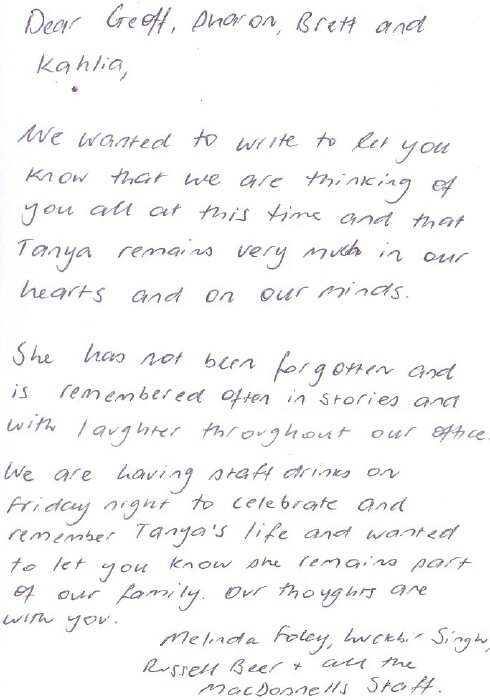 Dear Geoff, Sharon, Brett and
Kahlia,
We wanted to write to let you
know that we are thinking of
you all at this time and that
Tanya remains very much in our
hearts and on our minds.
She has not been forgotten and
is remembered often in stories and
with laughter throughout our office.
We are having staff drinks on
Friday night to celebrate and
remember Tanya's life and wanted
to let you know she remains part
of our family. Our thoughts are
with you.
Melinda Foley, Singh,
Russell Beer + all the
MacDonnells Staff.